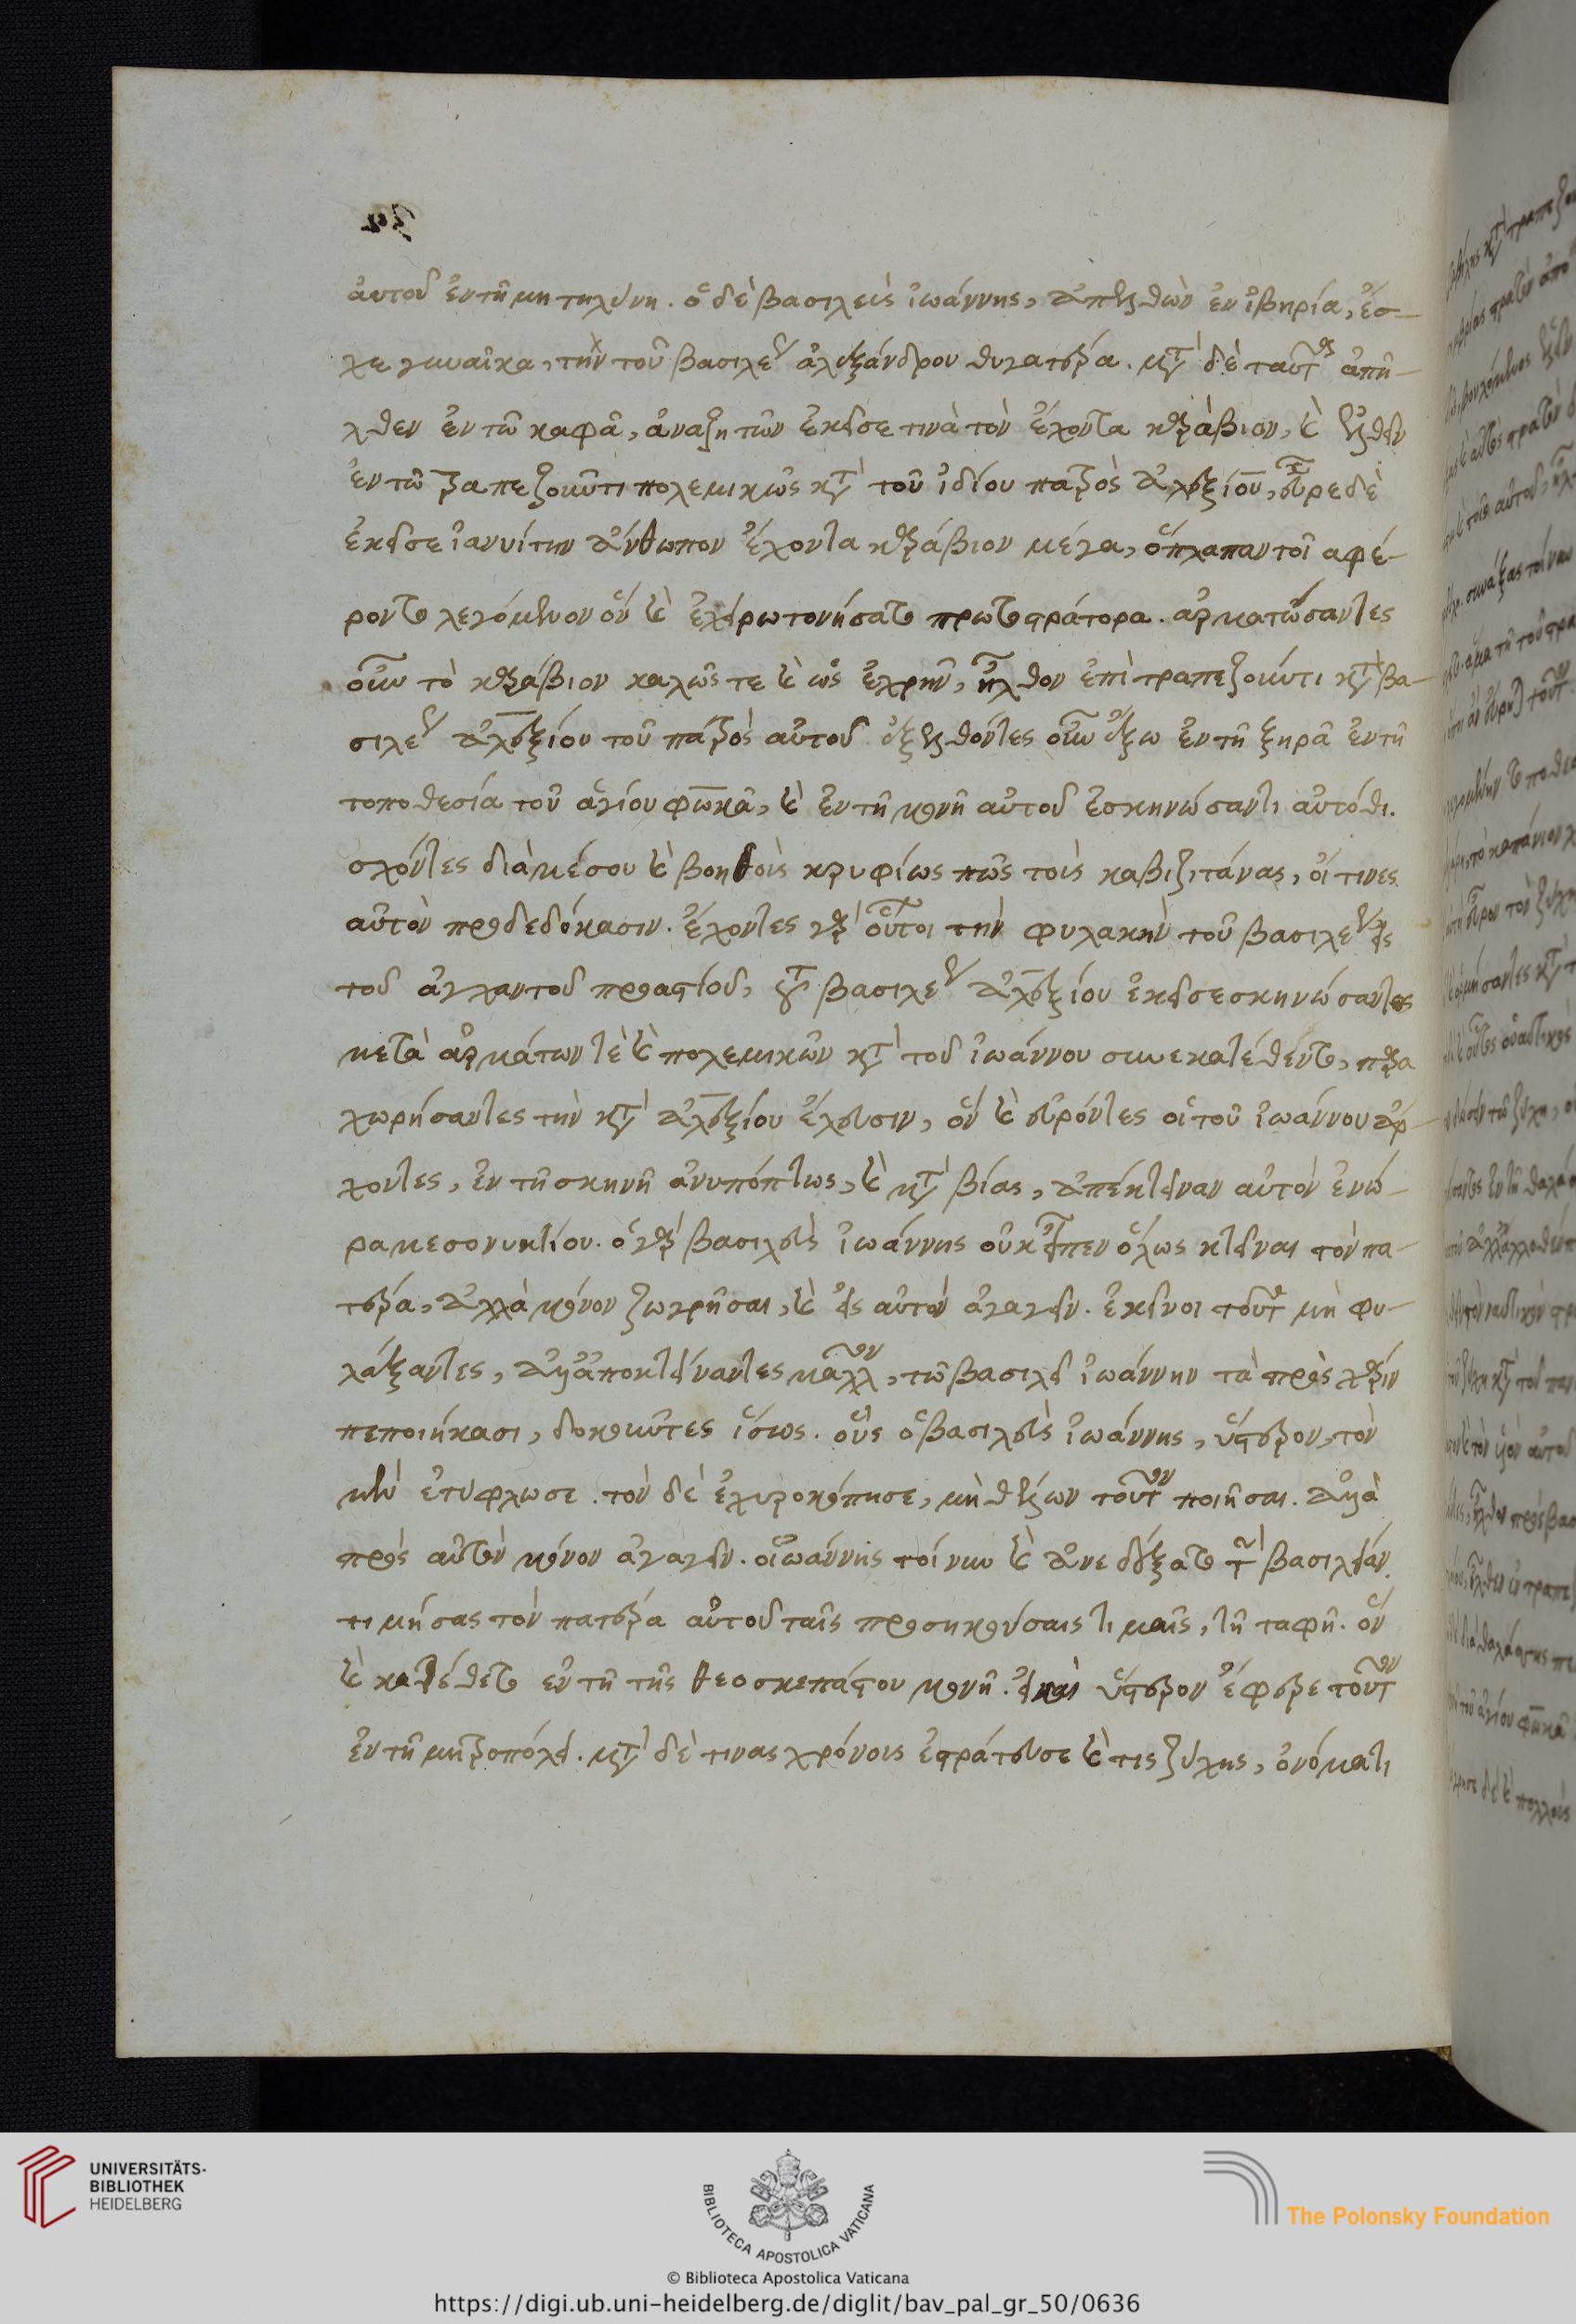 αὐτοῦ ἐν τῇ μητηλύνῃ. ὁ δὲ βασιλεὺς ἰωάννης, ἀπελθὼν ἐν ἰβηρία, ἔσ-
χε γυναῖκα, τὴν τοῦ βασιλέως ἀλεξάνδρου θυγατέρα. μετὰ δὲ ταῦτα ἀπῆ-
λθεν ἐν τῶ καφᾶ, ἀναζητῶν ἐκεῖσε τινὰ τὸν ἔχοντα καράβιον, καὶ ἐλθεῖν
ἐν τῶ τραπεζοῦντι πολεμικῶς κατὰ τοῦ ἰδίου πατρὸς ἀλεξίου, εὗρε δὲ
ἐκεῖσε ἰανυίτην ἄνθρωπον ἔχοντα καράβιον μέγα,
λεγόμενον ὃν καὶ ἐχειρωτονήσατο πρωτοστράτορα. ἀρματώσαντες
οὖν τὸ καράβιον καλῶς τε καὶ ὡς ἐχρῆν, ἦλθον ἐπὶ τραπεζοῦντι κατὰ βα-
σιλέως ἀλεξίου τοῦ πατρὸς αὐτοῦ ἐξελθόντες οὖν ἔξω ἐν τῇ ξηρᾶ ἐν τῇ
τοποθεσία τοῦ ἁγίου φωκᾶ, καὶ ἐν τῇ μονῇ αὐτοῦ ἐσκηνώσαντι αὐτόθι.
σχόντες διὰ μέσου καὶ βοηθοὺς κρυφίως πῶς τοὺς καβαζιτάνας, οἵτινες
αὐτὸν προδεδόκασιν. ἔχοντες γὰρ οὗτοι τὴν φυλακὴν τοῦ βασιλέως εἰς
τοῦ ἀχλαντοῦ προαστίου, τοῦ βασιλέως ἀλεξίου ἐκεῖσε σκηνώσαντος
μετὰ ἀρμάτων τὲ καὶ πολεμικῶν κατὰ τοῦ ἰωάννου συνεκατέθεντο, παρα
χωρήσαντες τὴν κατὰ ἀλεξίου ἔλευσιν, ὃν καὶ εὑρόντες οἱ τοῦ ἰωάννου ἄρ-
χοντες, ἐν τῇ σκηνῇ ἀνυπόπτως, καὶ κατὰ βίας, ἀπέκτειναν αὐτὸν ἐν ὥ-
ρα μεσονυκτίου. ὁ γὰρ βασιλεὺς ἰωάννης οὐκ εἶπεν ὅλως κτεῖναι τὸν πα-
τέρα, ἀλλὰ μόνον ζωγρῆσαι, καὶ εἰς αὐτὸν ἀγαγεῖν. ἐκεῖνοι τοῦτο μὴ φυ-
λάξαντες, ἀλλ' ἀποκτείναντες μᾶλλον, τῶ βασιλεῖ ἰωάννην τὰ πρὸς χάριν
πεποιήκασι, δοκοῦντες ἴσως. οὓς ὁ βασιλεὺς ἰωάννης, ὕστερον, τὸν
μὲν ἐτύφλωσε. τὸν δὲ ἐχειροκόπησε, μὴ θέλων τοῦτον ποιῆσαι. ἀλλὰ
πρὸς αὐτὸν μόνον ἀγαγεῖν. ὁ ἰωάννης τοίνυν καὶ ἀνεδέξατο τὴν βασιλείαν.
τιμήσας τὸν πατέρα αὐτοῦ ταῖς προσηκούσαις τιμαῖς, τῇ ταφῇ. ὃν
καὶ κατέθετο ἐν τῇ τῆς θεοσκεπάστου μονῇ. εἶτα ὕστερον ἔφερε τοῦτον
ἐν τῇ μητροπόλει. μετὰ δὲ τινας χρόνους ἐστράτευσε καὶ τις ζύχης, ὀνόματι
UNIVERSITÄTS-
BIBLIOTHEK
HEIDELBERG
BIBLIOTECA APOSTOLICA VATICANA
The Polonsky Foundation
© Biblioteca Apostolica Vaticana
https://digi.ub.uni-heidelberg.de/diglit/bav_pal_gr_50/0636